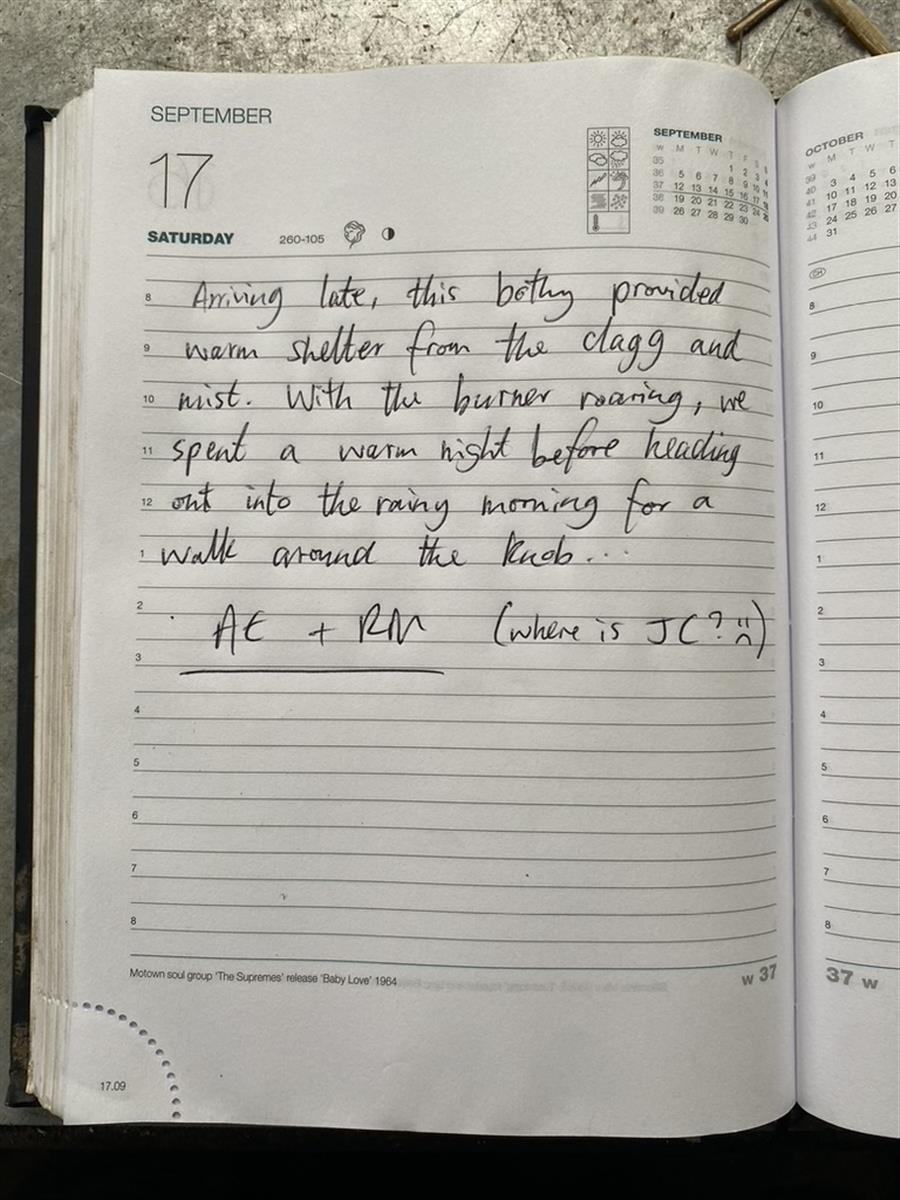 SEPTEMBER
17
SATURDAY 260-105
SEPTEMBER
W M T W T F S S
35 1 2 3 4
36 5 6 7 8 9 10 11
37 12 13 14 15 16 17 18
38 19 20 21 22 23 24 25
39 26 27 28 29 30
8 Arriving late, this bothy provided
9 warm shelter from the clagg and
10 mist. With the burner roaring, we
11 spent a warm night before heading
12 out into the rainy morning for a
1 walk around the knob...
2 AE + RM (where is JC? :( )
3
4
5
6
7
8
Motown soul group 'The Supremes' release 'Baby Love' 1964
w 37
17.09
OCTOBER
W M T W T
39
40 3 4 5 6
41 10 11 12 13
42 17 18 19 20
43 24 25 26 27
44 31
CH
8
9
10
11
12
1
2
3
4
5
6
7
8
37 w